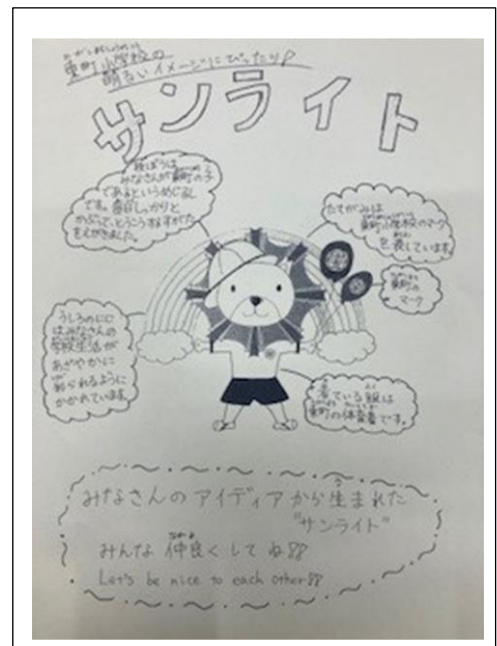 東町小学校の
明るいイメージにぴったり♪
サンライト
校ぼうは
みなさんが東町の子
であるというめじるし
です。毎日しっかりと
かぶって、とうこうするすがた
をえがきました。
たてがみは
東町小学校のマーク
を表しています。
東町の
マーク
うしろのにじ
はみなさんの
学校生活が
あざやかに
彩られるように
かかれています。
着ている服は
東町の体育着です。
みなさんのアイディアから生まれた
"サンライト"
みんな仲良くしてね!!
Let's be nice to each other!!